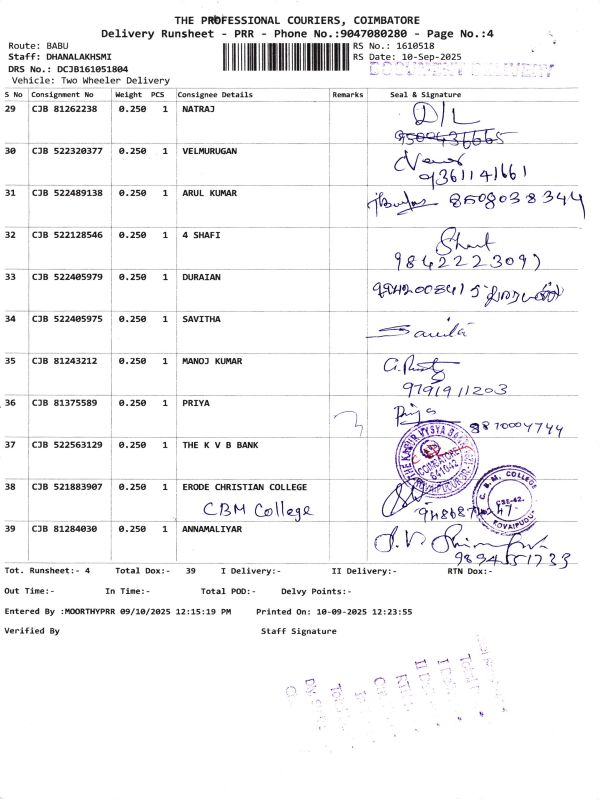 THE PROFESSIONAL COURIERS, COIMBATORE
Delivery Runsheet - PRR - Phone No.:9047080280 - Page No.:4
Route: BABU RS No.: 1610518
Staff: DHANALAKHSMI RS Date: 10-Sep-2025
DRS No.: DCJB161051804 DOCUMENT DELIVERY
Vehicle: Two Wheeler Delivery
S No Consignment No Weight PCS Consignee Details Remarks Seal & Signature
29 CJB 81262238 0.250 1 NATRAJ D/L
30 CJB 522320377 0.250 1 VELMURUGAN
9361141661
31 CJB 522489138 0.250 1 ARUL KUMAR 8508038344
32 CJB 522128546 0.250 1 4 SHAFI
33 CJB 522405979 0.250 1 DURAIAN 9942200841
34 CJB 522405975 0.250 1 SAVITHA Savita
35 CJB 81243212 0.250 1 MANOJ KUMAR
9791911203
36 CJB 81375589 0.250 1 PRIYA Priya 8870004744
37 CJB 522563129 0.250 1 THE K V B BANK THE KARUR VYSYA BANK COIMBATORE 641042
38 CJB 521883907 0.250 1 ERODE CHRISTIAN COLLEGE C. B. M. COLLEGE CBE-42. KOVAIPUDUR
CBM College
39 CJB 81284030 0.250 1 ANNAMALIYAR
Tot. Runsheet:- 4 Total Dox:- 39 I Delivery:- II Delivery:- RTN Dox:-
Out Time:- In Time:- Total POD:- Delvy Points:-
Entered By :MOORTHYPRR 09/10/2025 12:15:19 PM Printed On: 10-09-2025 12:23:55
Verified By Staff Signature